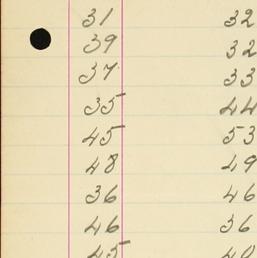 31 32
39 32
37 33
35 44
45 53
48 49
36 46
46 36
45 40